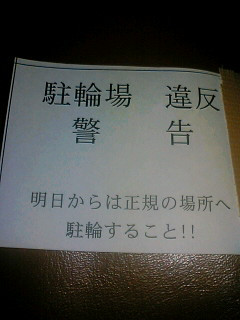 駐輪場　違反
警　　告
明日からは正規の場所へ
駐輪すること!!